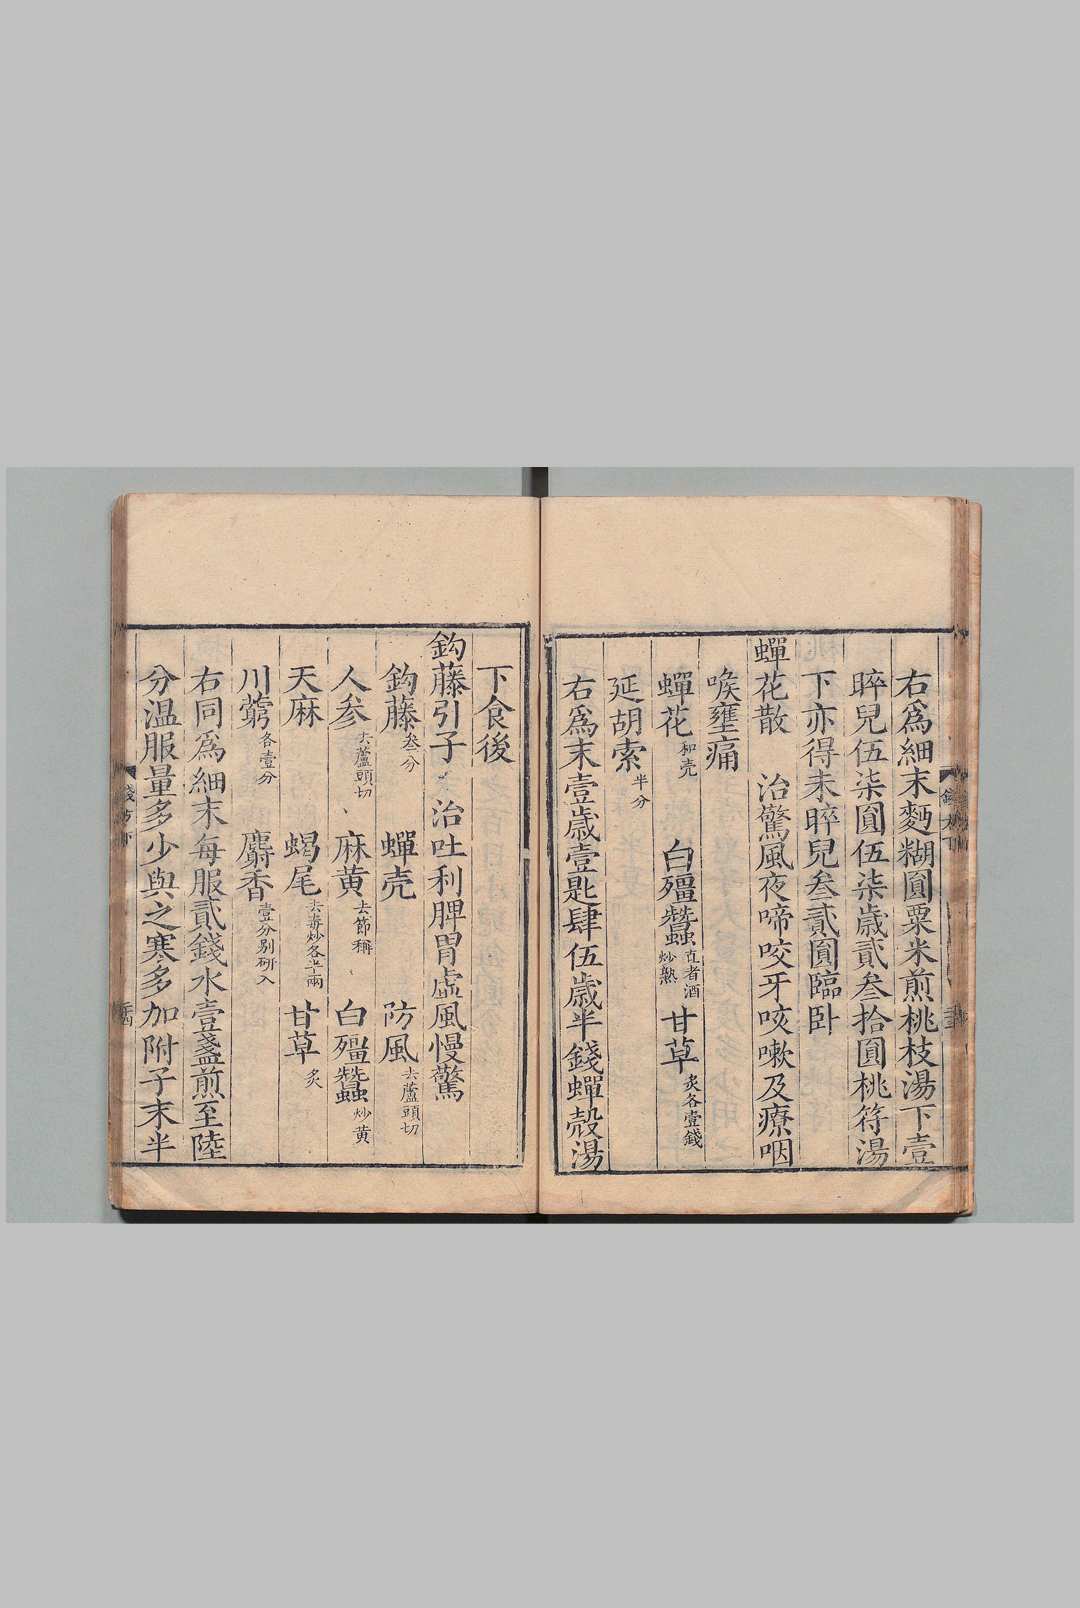 右爲細末麪糊圓粟米煎桃枝湯下壹
晬兒伍柒圓伍柒歲貳叁拾圓桃符湯
下亦得未晬兒叁貳圓臨卧
蟬花散　治驚風夜啼咬牙咳嗽及療咽
喉壅痛
蟬花和壳　白殭蠶直者酒炒熟　甘草炙各壹錢
延胡索半分
右爲末壹歲壹匙肆伍歲半錢蟬殼湯
下食後
鈎藤引子　治吐利脾胃虛風慢驚
鈎藤叁分　蟬壳　防風去蘆頭切
人参去蘆頭切　麻黄去節稱　白殭蠶炒黄
天麻　蝎尾去毒炒各半兩　甘草炙
川藭各壹分　麝香壹分别研入
右同爲細末每服貳錢水壹盞煎至陸
分温服量多少與之寒多加附子末半